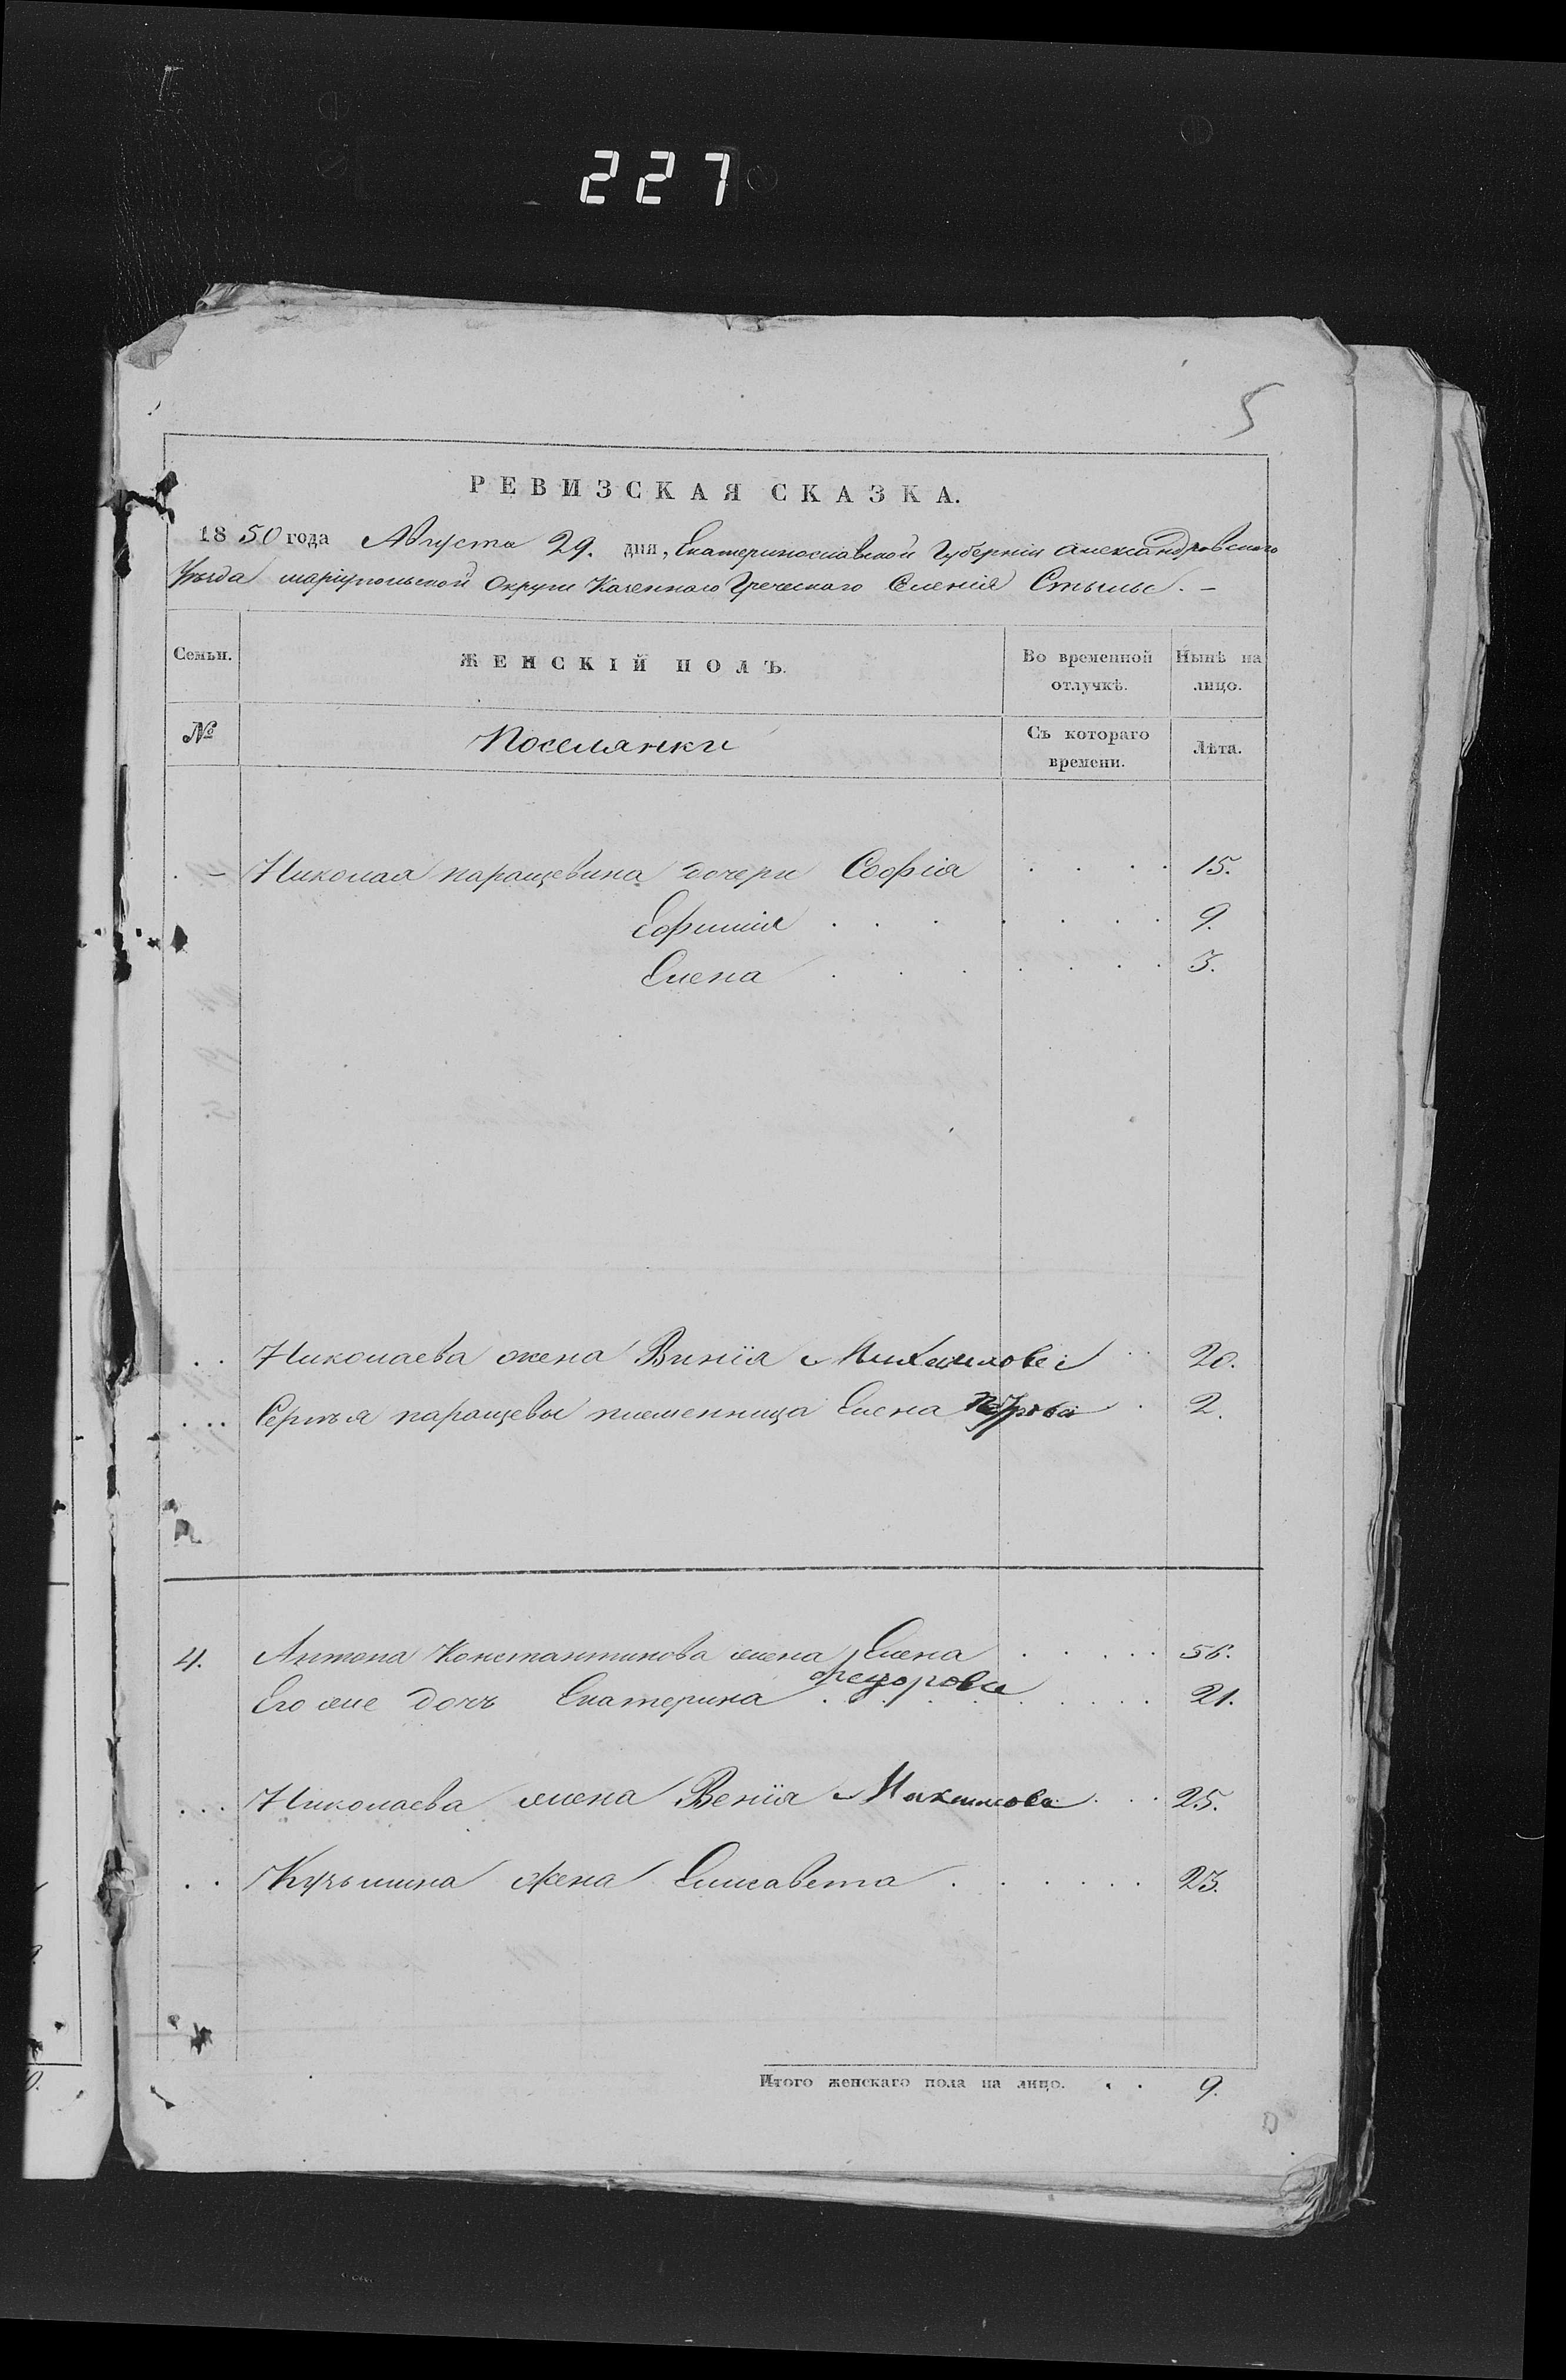 227
5
РЕВИЗСКАЯ СКАЗКА.
1850 года Августа 29. дня, Екатеринославской Губерніи Александровского
Уѣзда Маріупольской Округи Казенного Греческаго Селенія Стыльс. –
Семьи. ЖЕНСКІЙ ПОЛЪ. Во временной отлучкѣ. Нынѣ на лицо.
№ Поселянки Съ котораго времени. Лѣта.
– Николая паращевина дочери София . . . . 15.
Ефимия . . . . . . . 9.
Елена . . . . . . . 3.
. . Николаева жена Винїя Михаилова . . 20.
. . . Сергѣя паращевы племенница Елена Петрова . 2.
4. Антона Константинова жена Елена . . . . . 56.
Федорова
Его же дочь Екатерина . . . . . . . 21.
. . . Николаева жена Венїя Максимова . . . 25.
. . Кузьмина жена Елисавета . . . . . . 23.
Итого женскаго пола на лицо. . . 9.